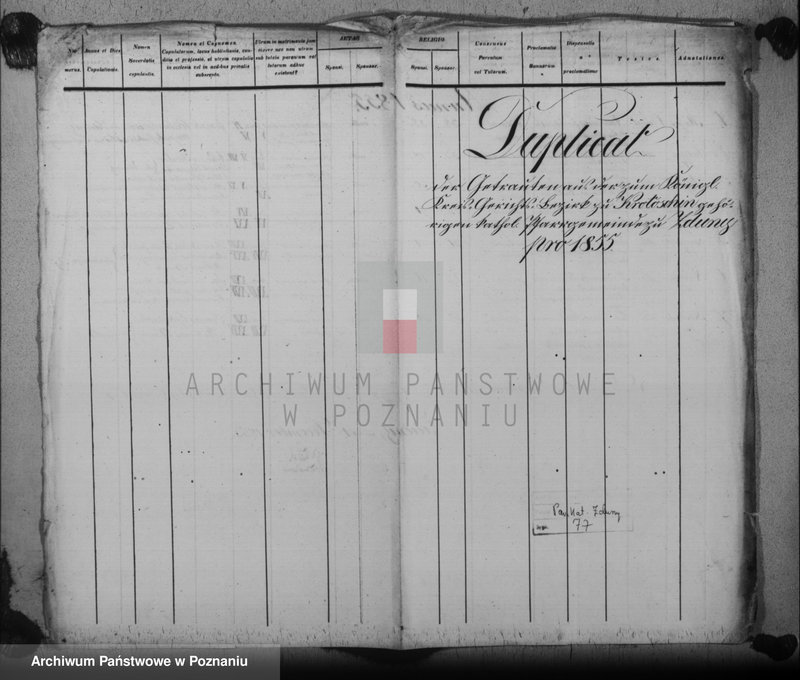 Nu-
merus.
Annus et Dies
Copulationis.
Nomen
Sacerdotis
copulantis.
Nomen et Cognomen
Copulatorum, locus habitationis, con-
ditio et professio, et utrum copulatio
in ecclesia vel in aedibus privatis
subsecuta.
Utrum in matrimonio jam
fuerunt nec non utrum
sub tutela parentum vel
tutorum adhuc
existunt?
AETAS
Sponsi.
Sponsae.
RELIGIO.
Sponsi.
Sponsae.
Consensus
Parentum
vel Tutorum.
Proclamatio
Bannorum
Dispensatio
a
proclamatione
Testes.
Adnotationes.
Duplicat
der Getrauten aus der zum Königl.
Kreis-Gerichts-Bezirk zu Krotoschin gehö-
rigen kathol. Pfarrgemeinde zu Zduny
pro 1855.
ARCHIWUM PAŃSTWOWE
W POZNANIU
Par. Kat. Zduny
77
Archiwum Państwowe w Poznaniu